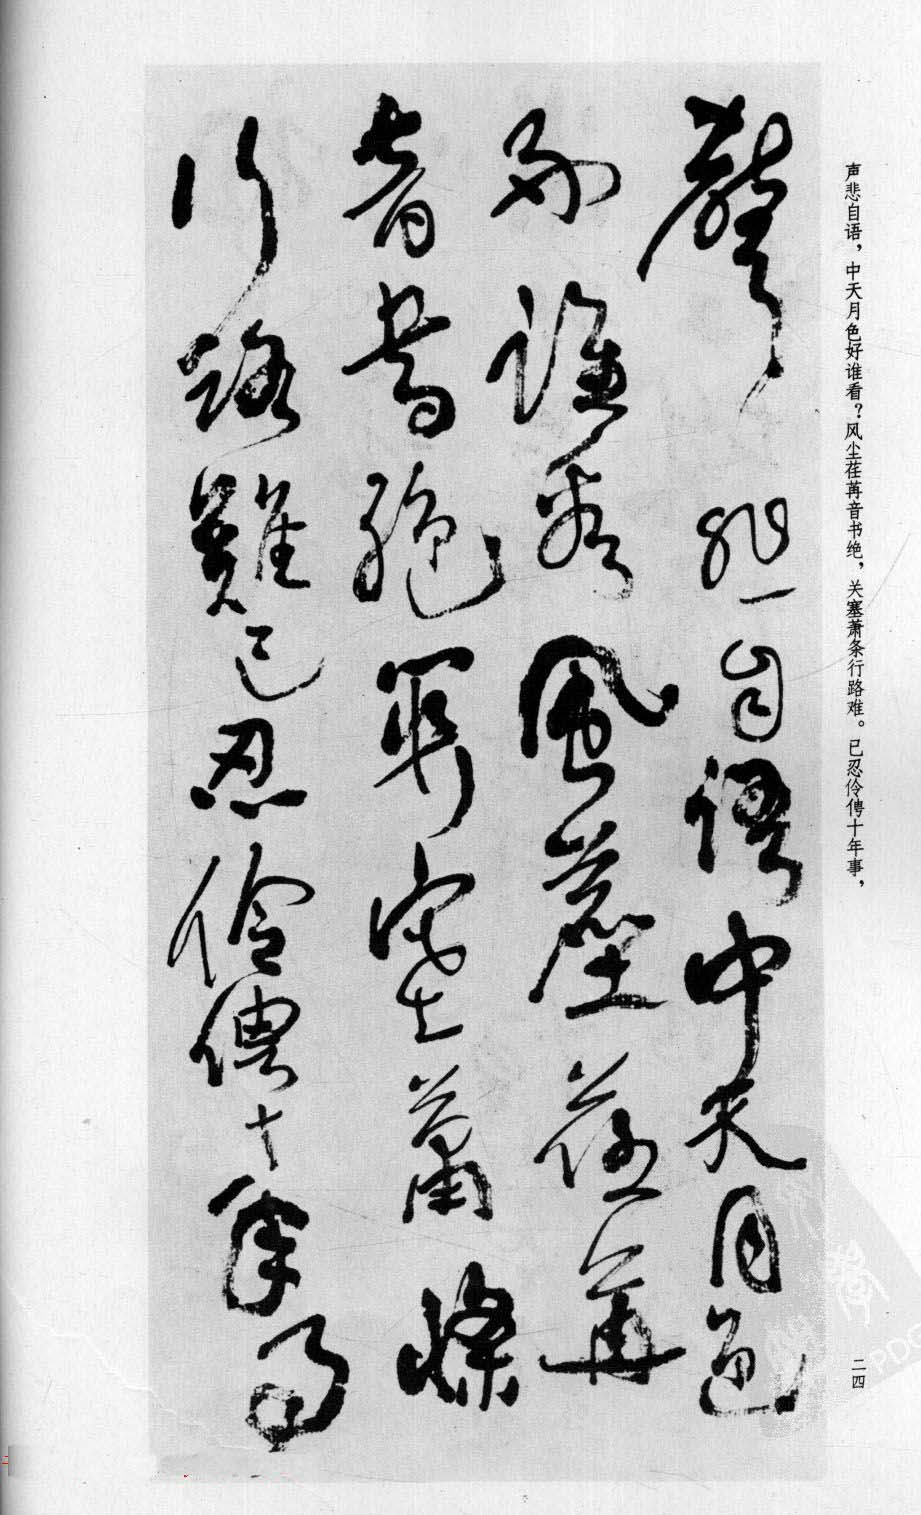 声悲自语，中天月色好谁看？风尘荏苒音书绝，关塞萧条行路难。已忍伶俜十年事，
二四
聲悲自語中天月色
好誰看風塵荏苒
音書絶關塞蕭條
行路難已忍伶俜十年事